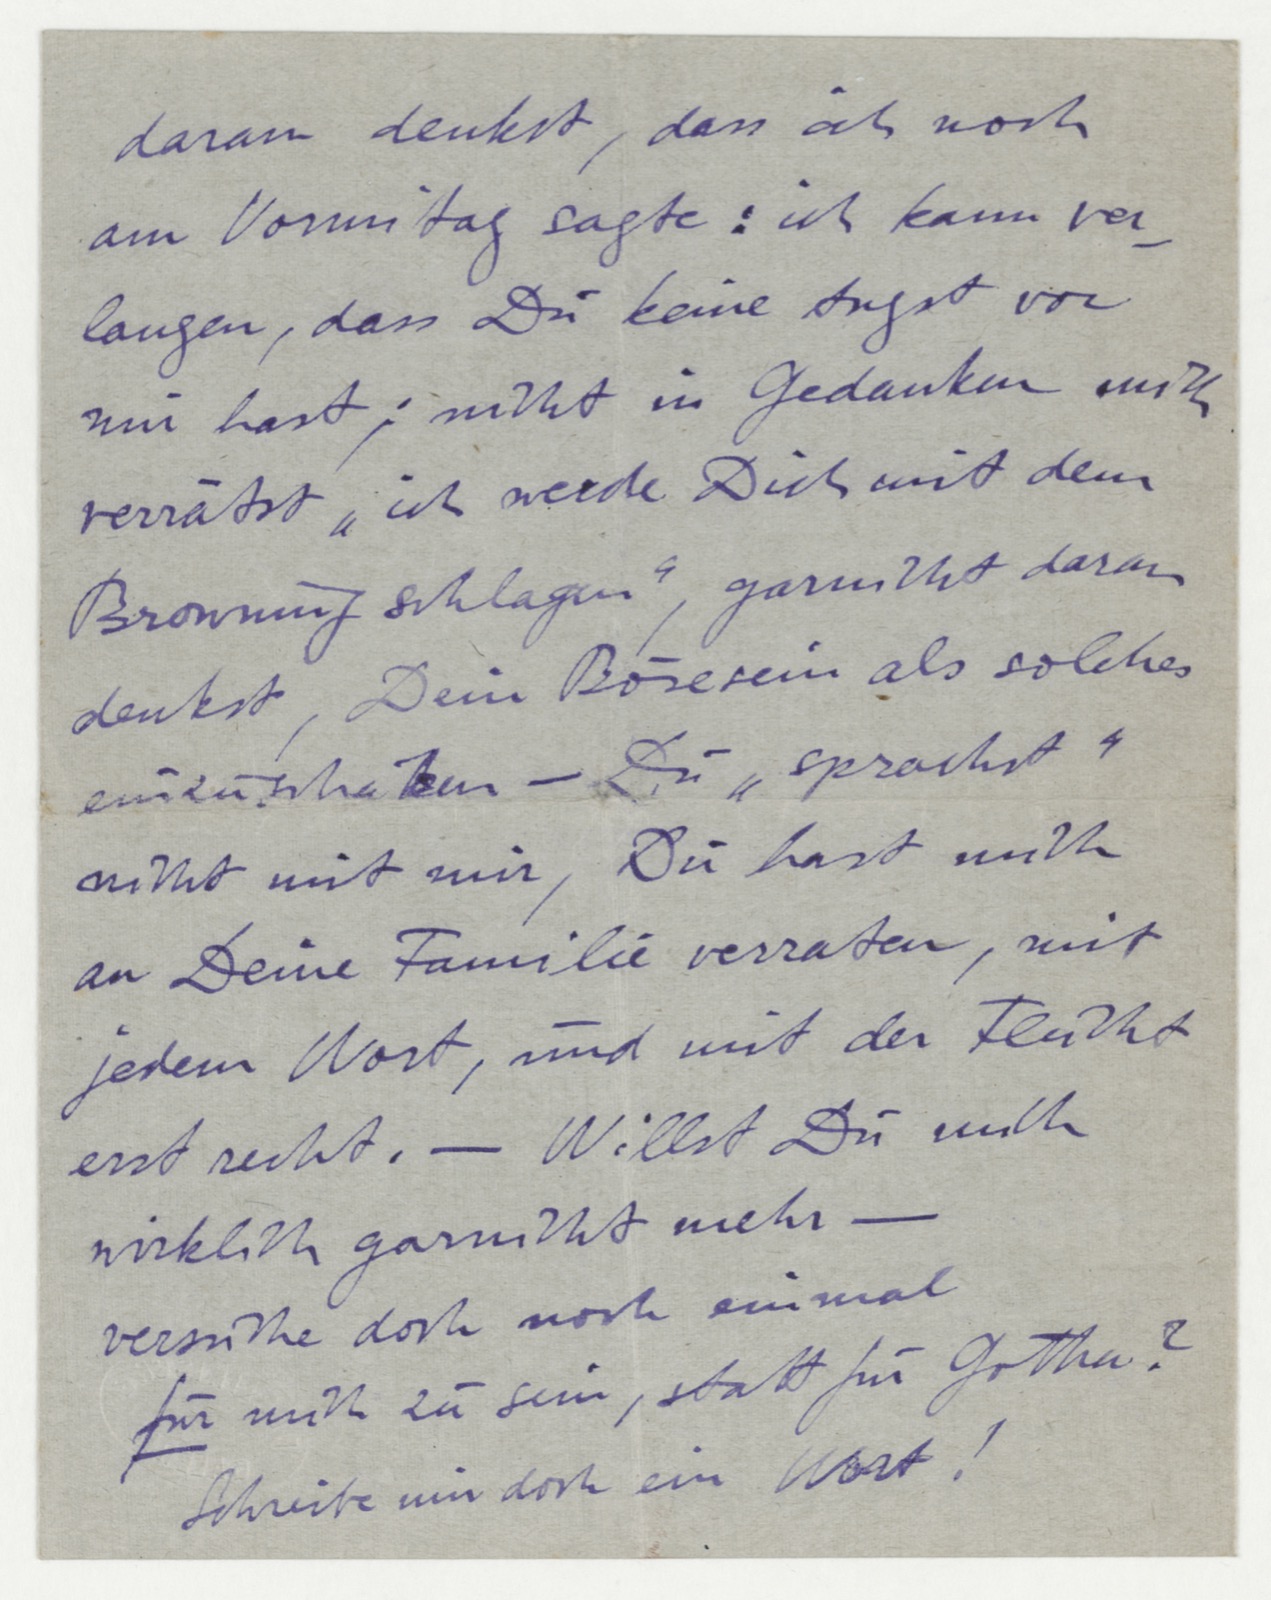 daran denkst, dass ich noch
am Vormitag sagte: ich kann ver-
langen, dass Du keine Angst vor
mir hast; nicht in Gedanken mich
verrätst „ich werde Dich mit dem
Browning schlagen“, garnicht daran
denkst, Dein Bösesein als solches
einzuschätzen – Du „sprachst“
nicht mit mir, Du hast mich
an Deine Familie verraten, mit
jedem Wort, und mit der Flucht
erst recht. – Willst Du mich
wirklich garnicht mehr –
versuche doch noch einmal
für mich zu sein, statt für Gotha?
Schreibe mir doch ein Wort!